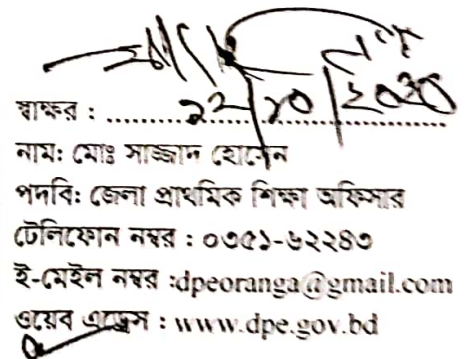 ২২/১০/২০২৩
স্বাক্ষর : ..........................................
নাম: মোঃ সাজ্জাদ হোসেন
পদবি: জেলা প্রাথমিক শিক্ষা অফিসার
টেলিফোন নম্বর : ০৩৫১-৬২২৪৩
ই-মেইল নম্বর :dpeoranga@gmail.com
ওয়েব এড্রেস : www.dpe.gov.bd